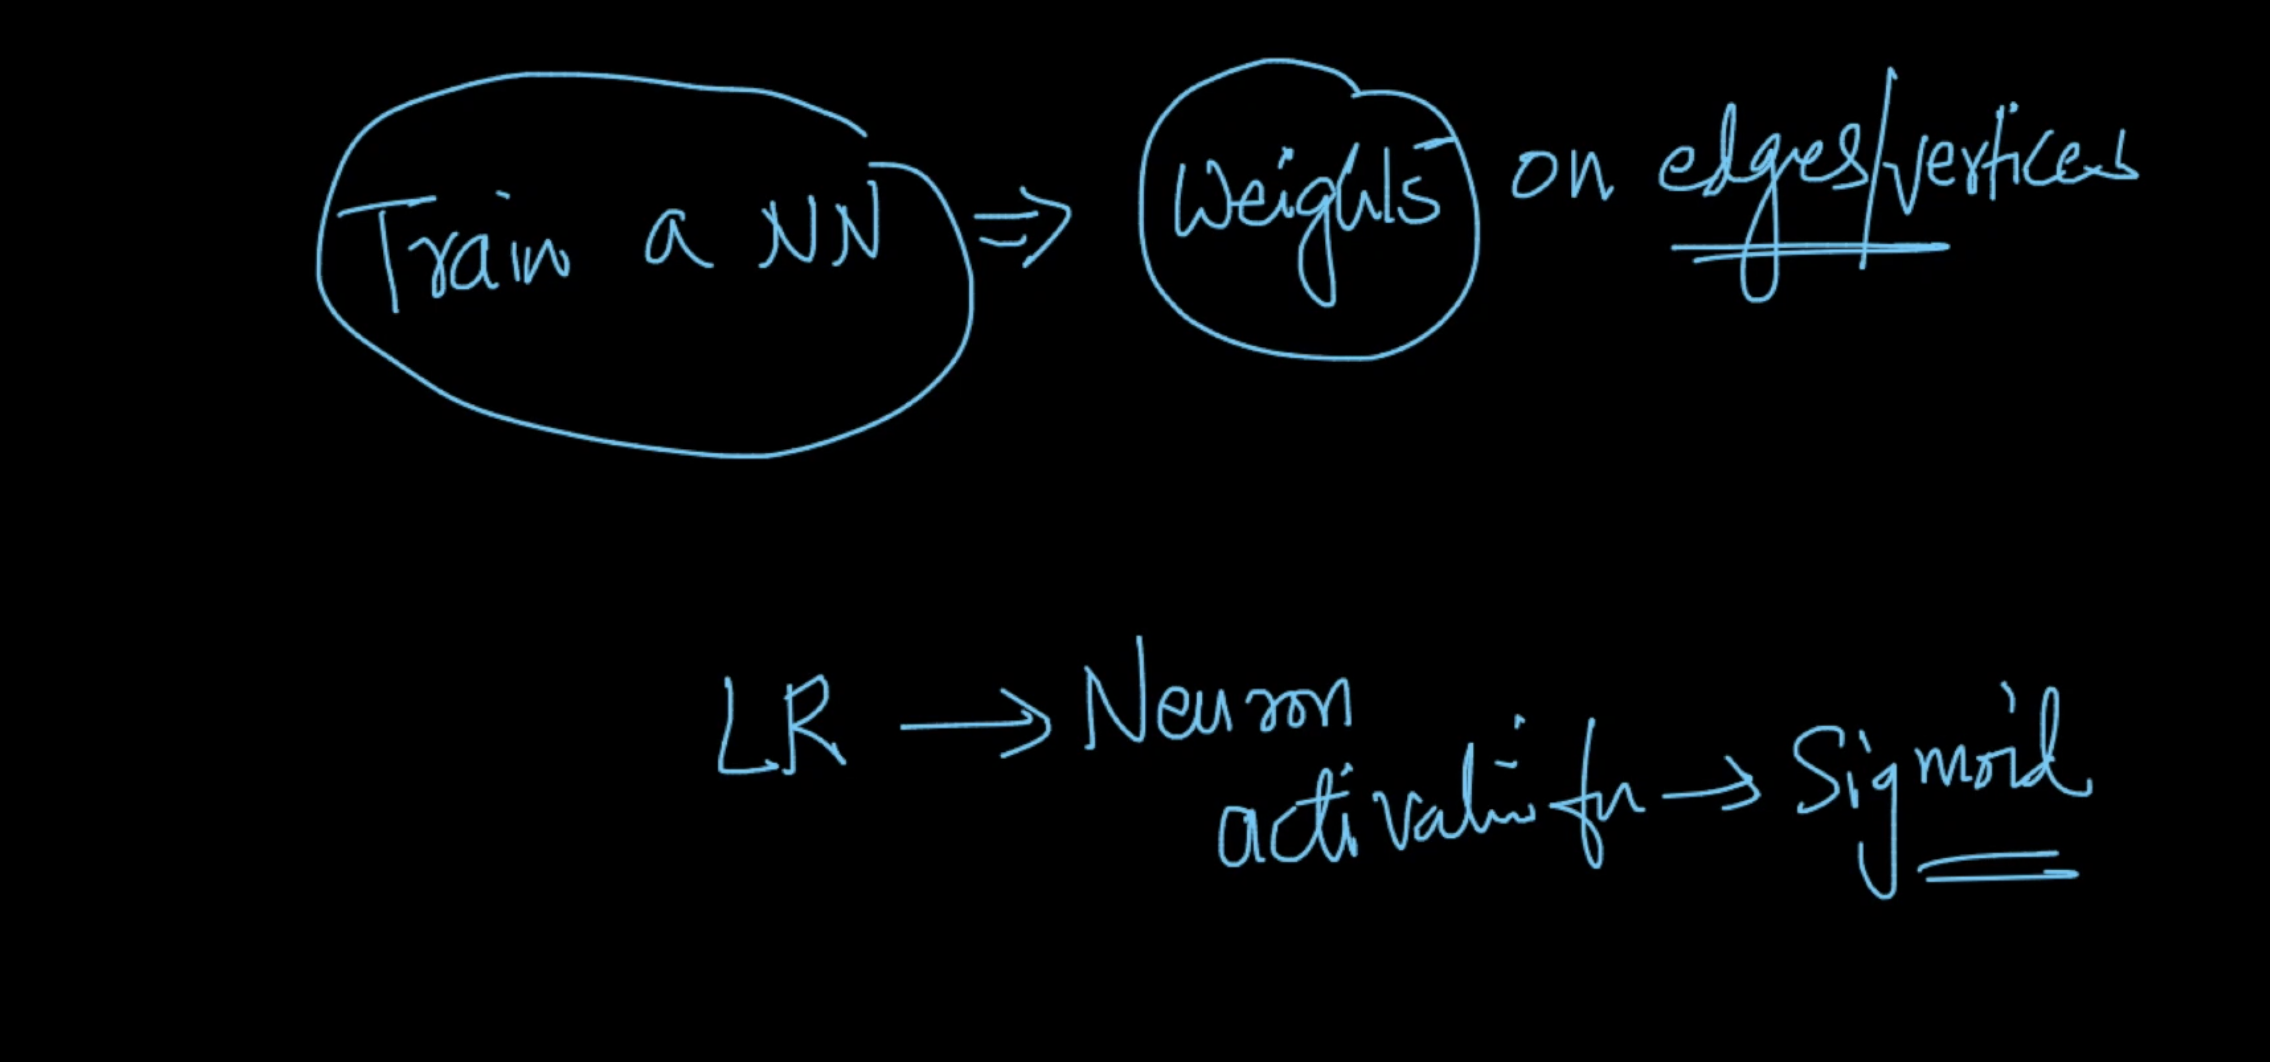 Train a NN ⇒ Weights on edges/vertices
LR → Neuron
activation fn → Sigmoid